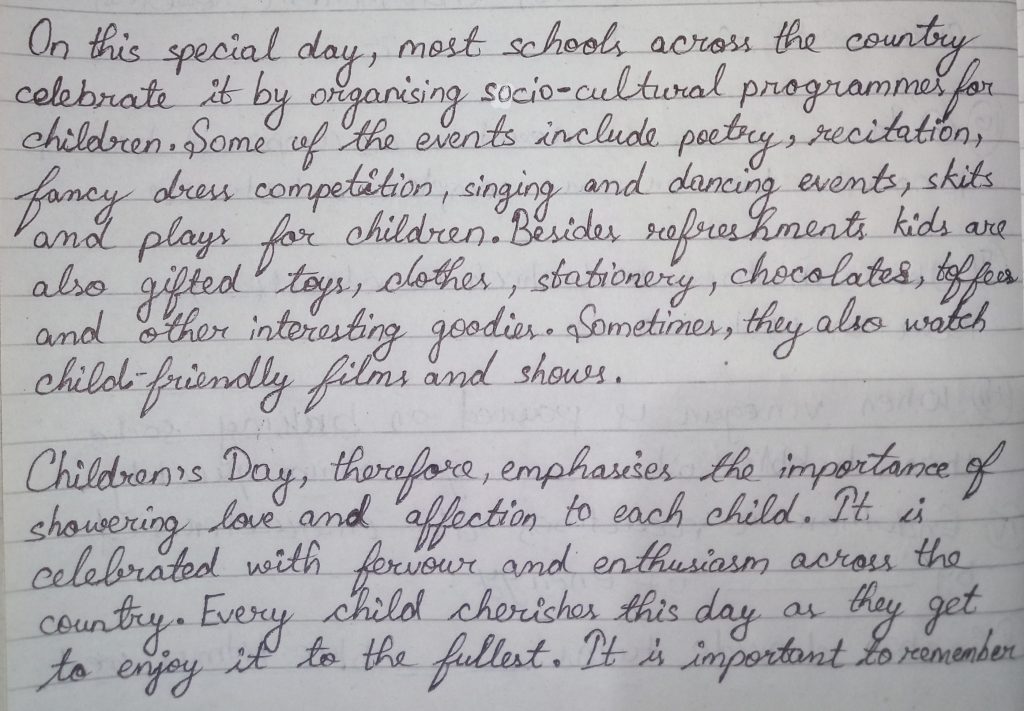 On this special day, most schools across the country
celebrate it by organising socio-cultural programmes for
children. Some of the events include poetry, recitation,
fancy dress competition, singing and dancing events, skits
and plays for children. Besides refreshments kids are
also gifted toys, clothes, stationery, chocolates, toffees
and other interesting goodies. Sometimes, they also watch
child-friendly films and shows.
Children's Day, therefore, emphasises the importance of
showering love and affection to each child. It is
celebrated with fervour and enthusiasm across the
country. Every child cherishes this day as they get
to enjoy it to the fullest. It is important to remember